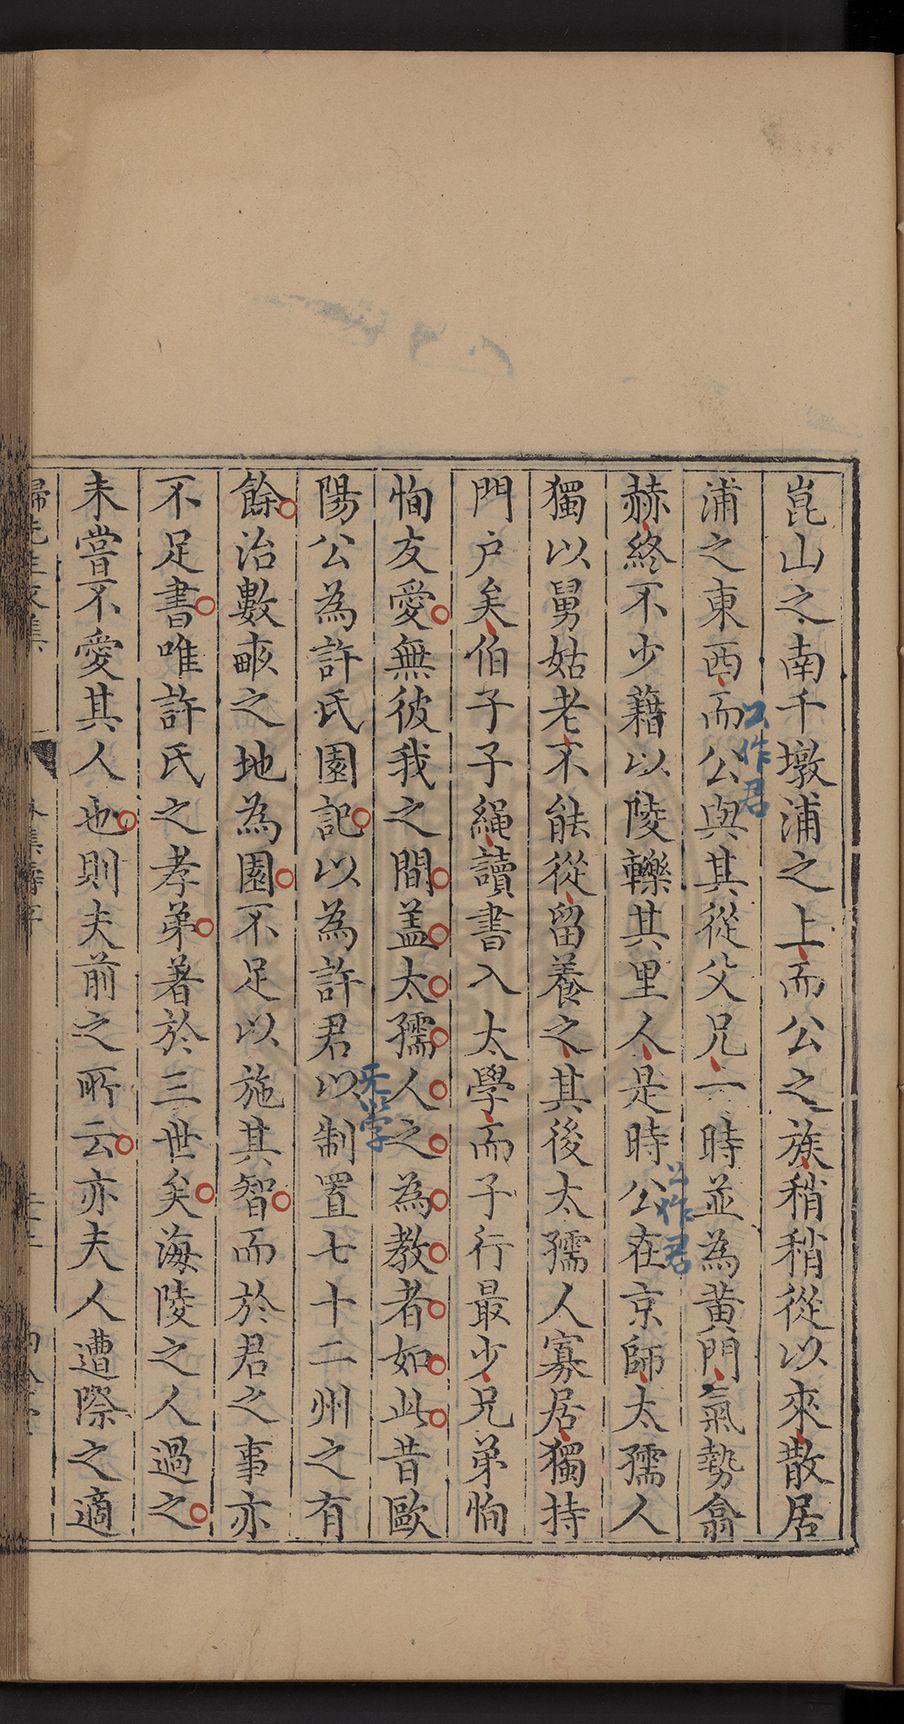 崑山之南千墩浦之上而公之族稍稍從以來散居
浦之東西而公與其從父兄一時並為黃門氣勢翕
公作君
赫終不少藉以陵轢其里人是時公在京師太孺人
公作君
獨以舅姑老不能從留養之其後太孺人寡居獨持
門户矣伯子子繩讀書入太學而子行最少兄弟恂
恂友愛無彼我之間盖太孺人之為教者如此昔歐
陽公為許氏園記以為許君以制置七十二州之有
餘治數畝之地為園不足以施其智而於君之事亦
不足書唯許氏之孝弟著於三世矣海陵之人過之
未嘗不愛其人也則夫前之所云亦夫人遭際之適